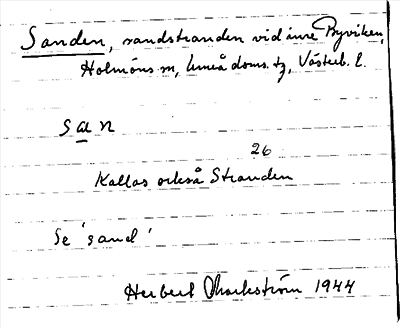 Sanden, sandstranden vid inre Byviken,
Holmöns sn, Umeå doms. tg, Västerb. l.
san
26
Kallas också Stranden
Se 'sand'
Herbert Markström 1944